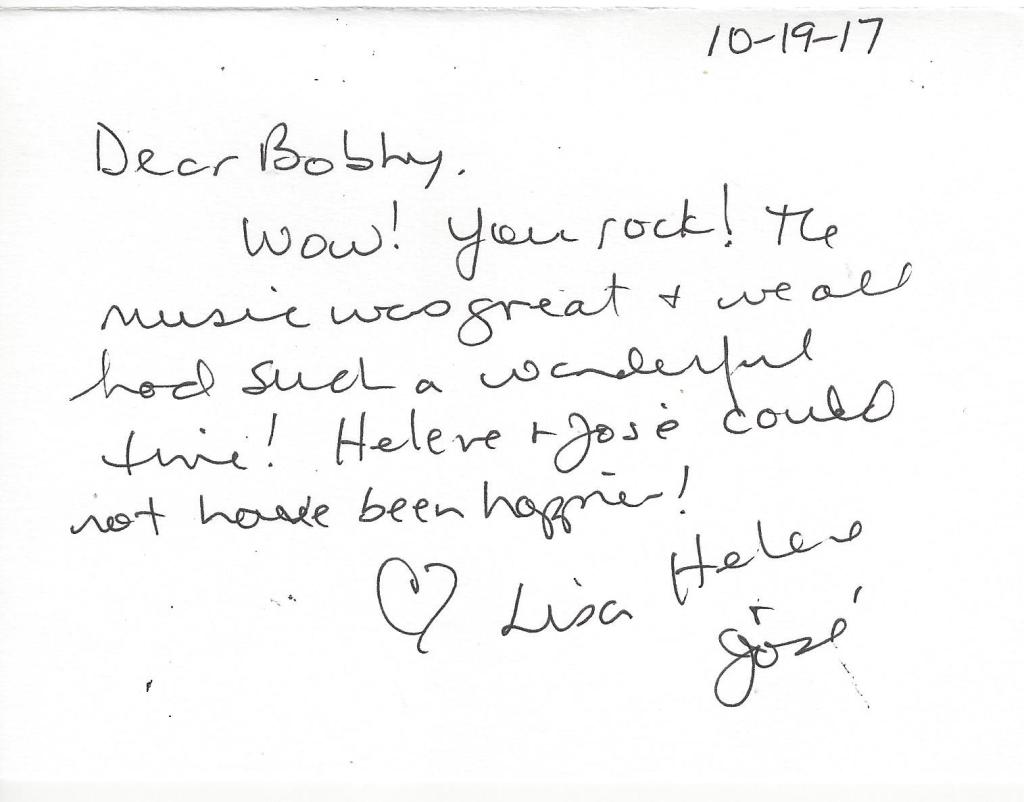 10-19-17
Dear Bobby,
Wow! You rock! The
music was great + we all
had such a wonderful
time! Helene + José could
not have been happier!
♡ Lisa Helene
+
José